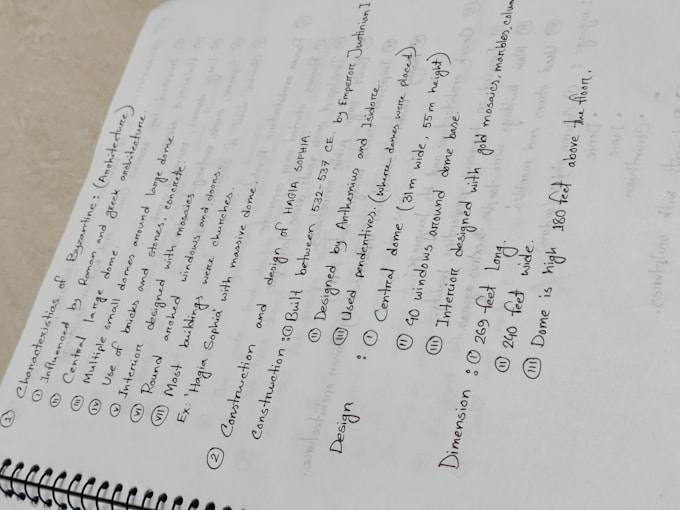 ① Characteristics of Byzantine : (Architecture)
ⓘ Influenced by Roman and greek architecture.
ⓘⓘ Central large dome.
ⓘⓘⓘ Multiple small domes around large dome.
ⓘⓥ Use of bricks and stones, concrete.
ⓥ Interior designed with mosaics
ⓥⓘ Round arched windows and doors.
ⓥⓘⓘ Most buildings were churches.
Ex: 'Hagia Sophia' with massive dome.
② Construction and design of HAGIA SOPHIA.
Construction : ⓘ Built between 532-537 CE by Emperor Justinian I
ⓘⓘ Designed by Anthemius and Isidore.
ⓘⓘⓘ Used pendentives. (where domes were placed)
Design : ⓘ Central dome (31m wide, 55m height)
ⓘⓘ 40 windows around dome base.
ⓘⓘⓘ Interior designed with gold mosaics, marbles, colum
Dimension : ⓘ 269 feet Long.
ⓘⓘ 240 feet wide.
ⓘⓘⓘ Dome is high 180 feet above the floor.